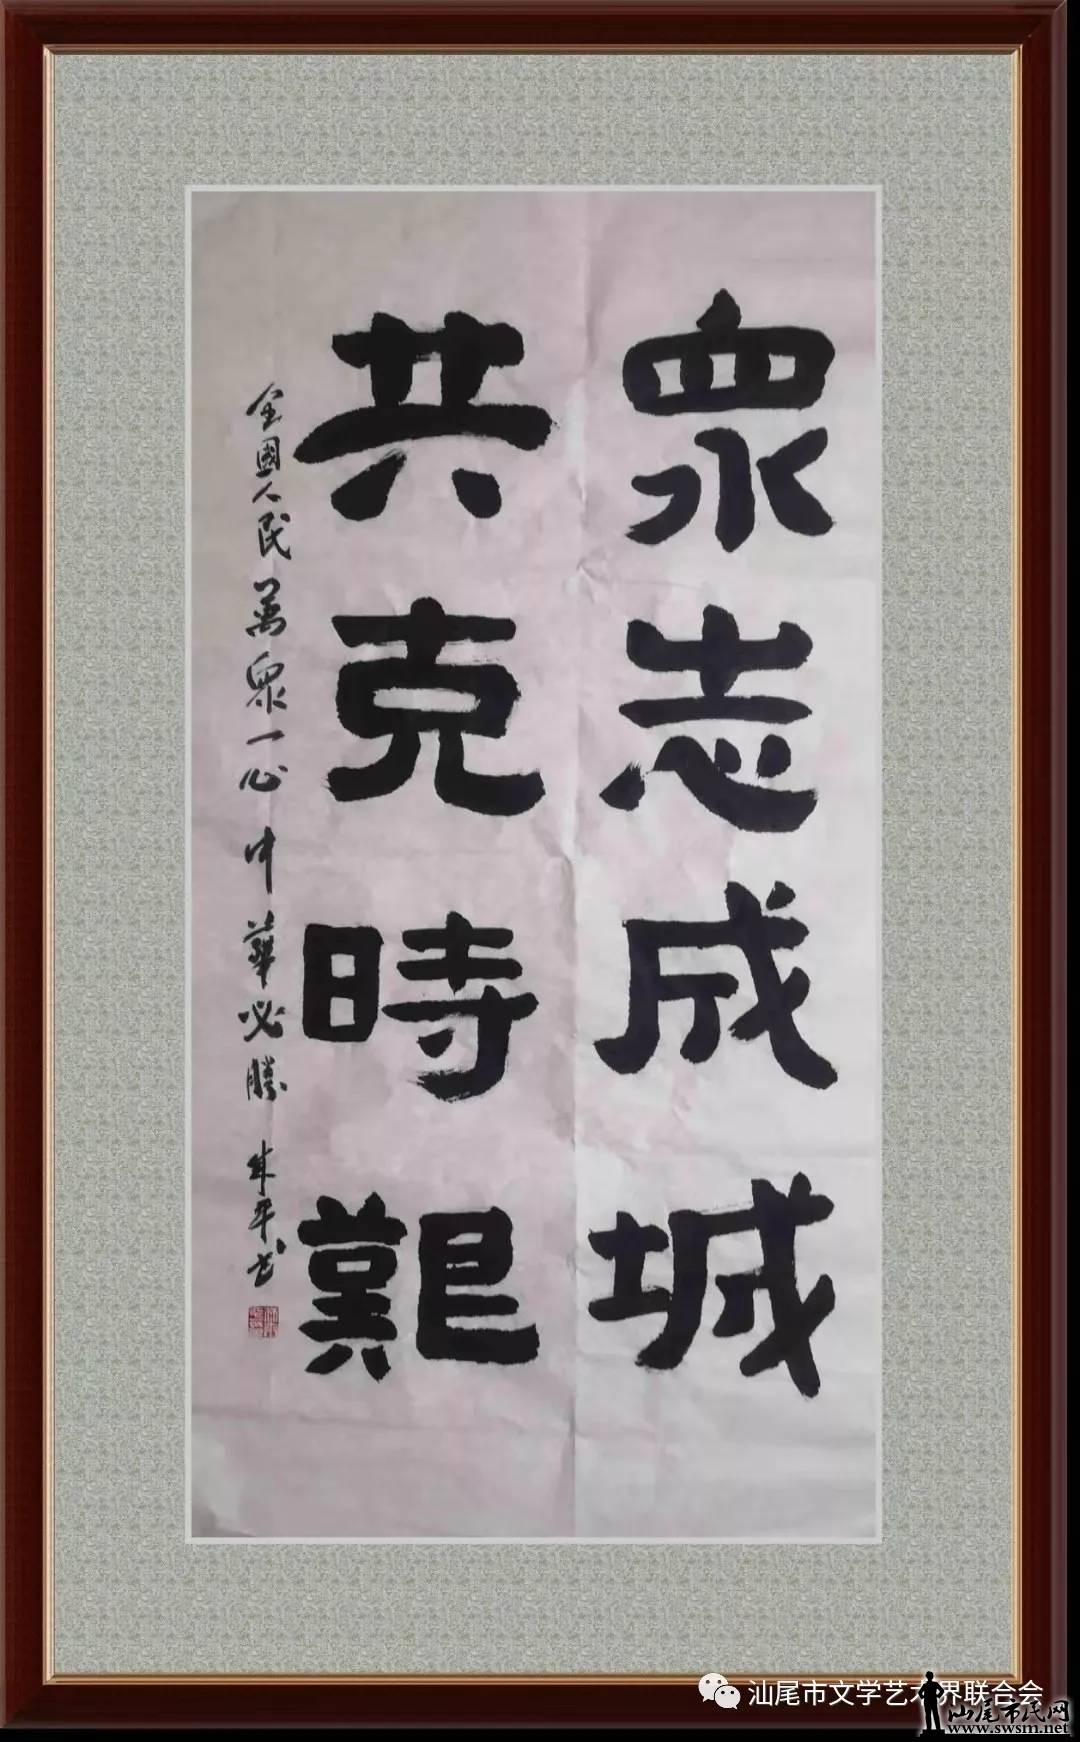 眾志成城
共克時艱
全國人民萬眾一心中華必勝 朱平书
汕尾市文学艺术界联合会
汕尾市民网
www.swsm.net